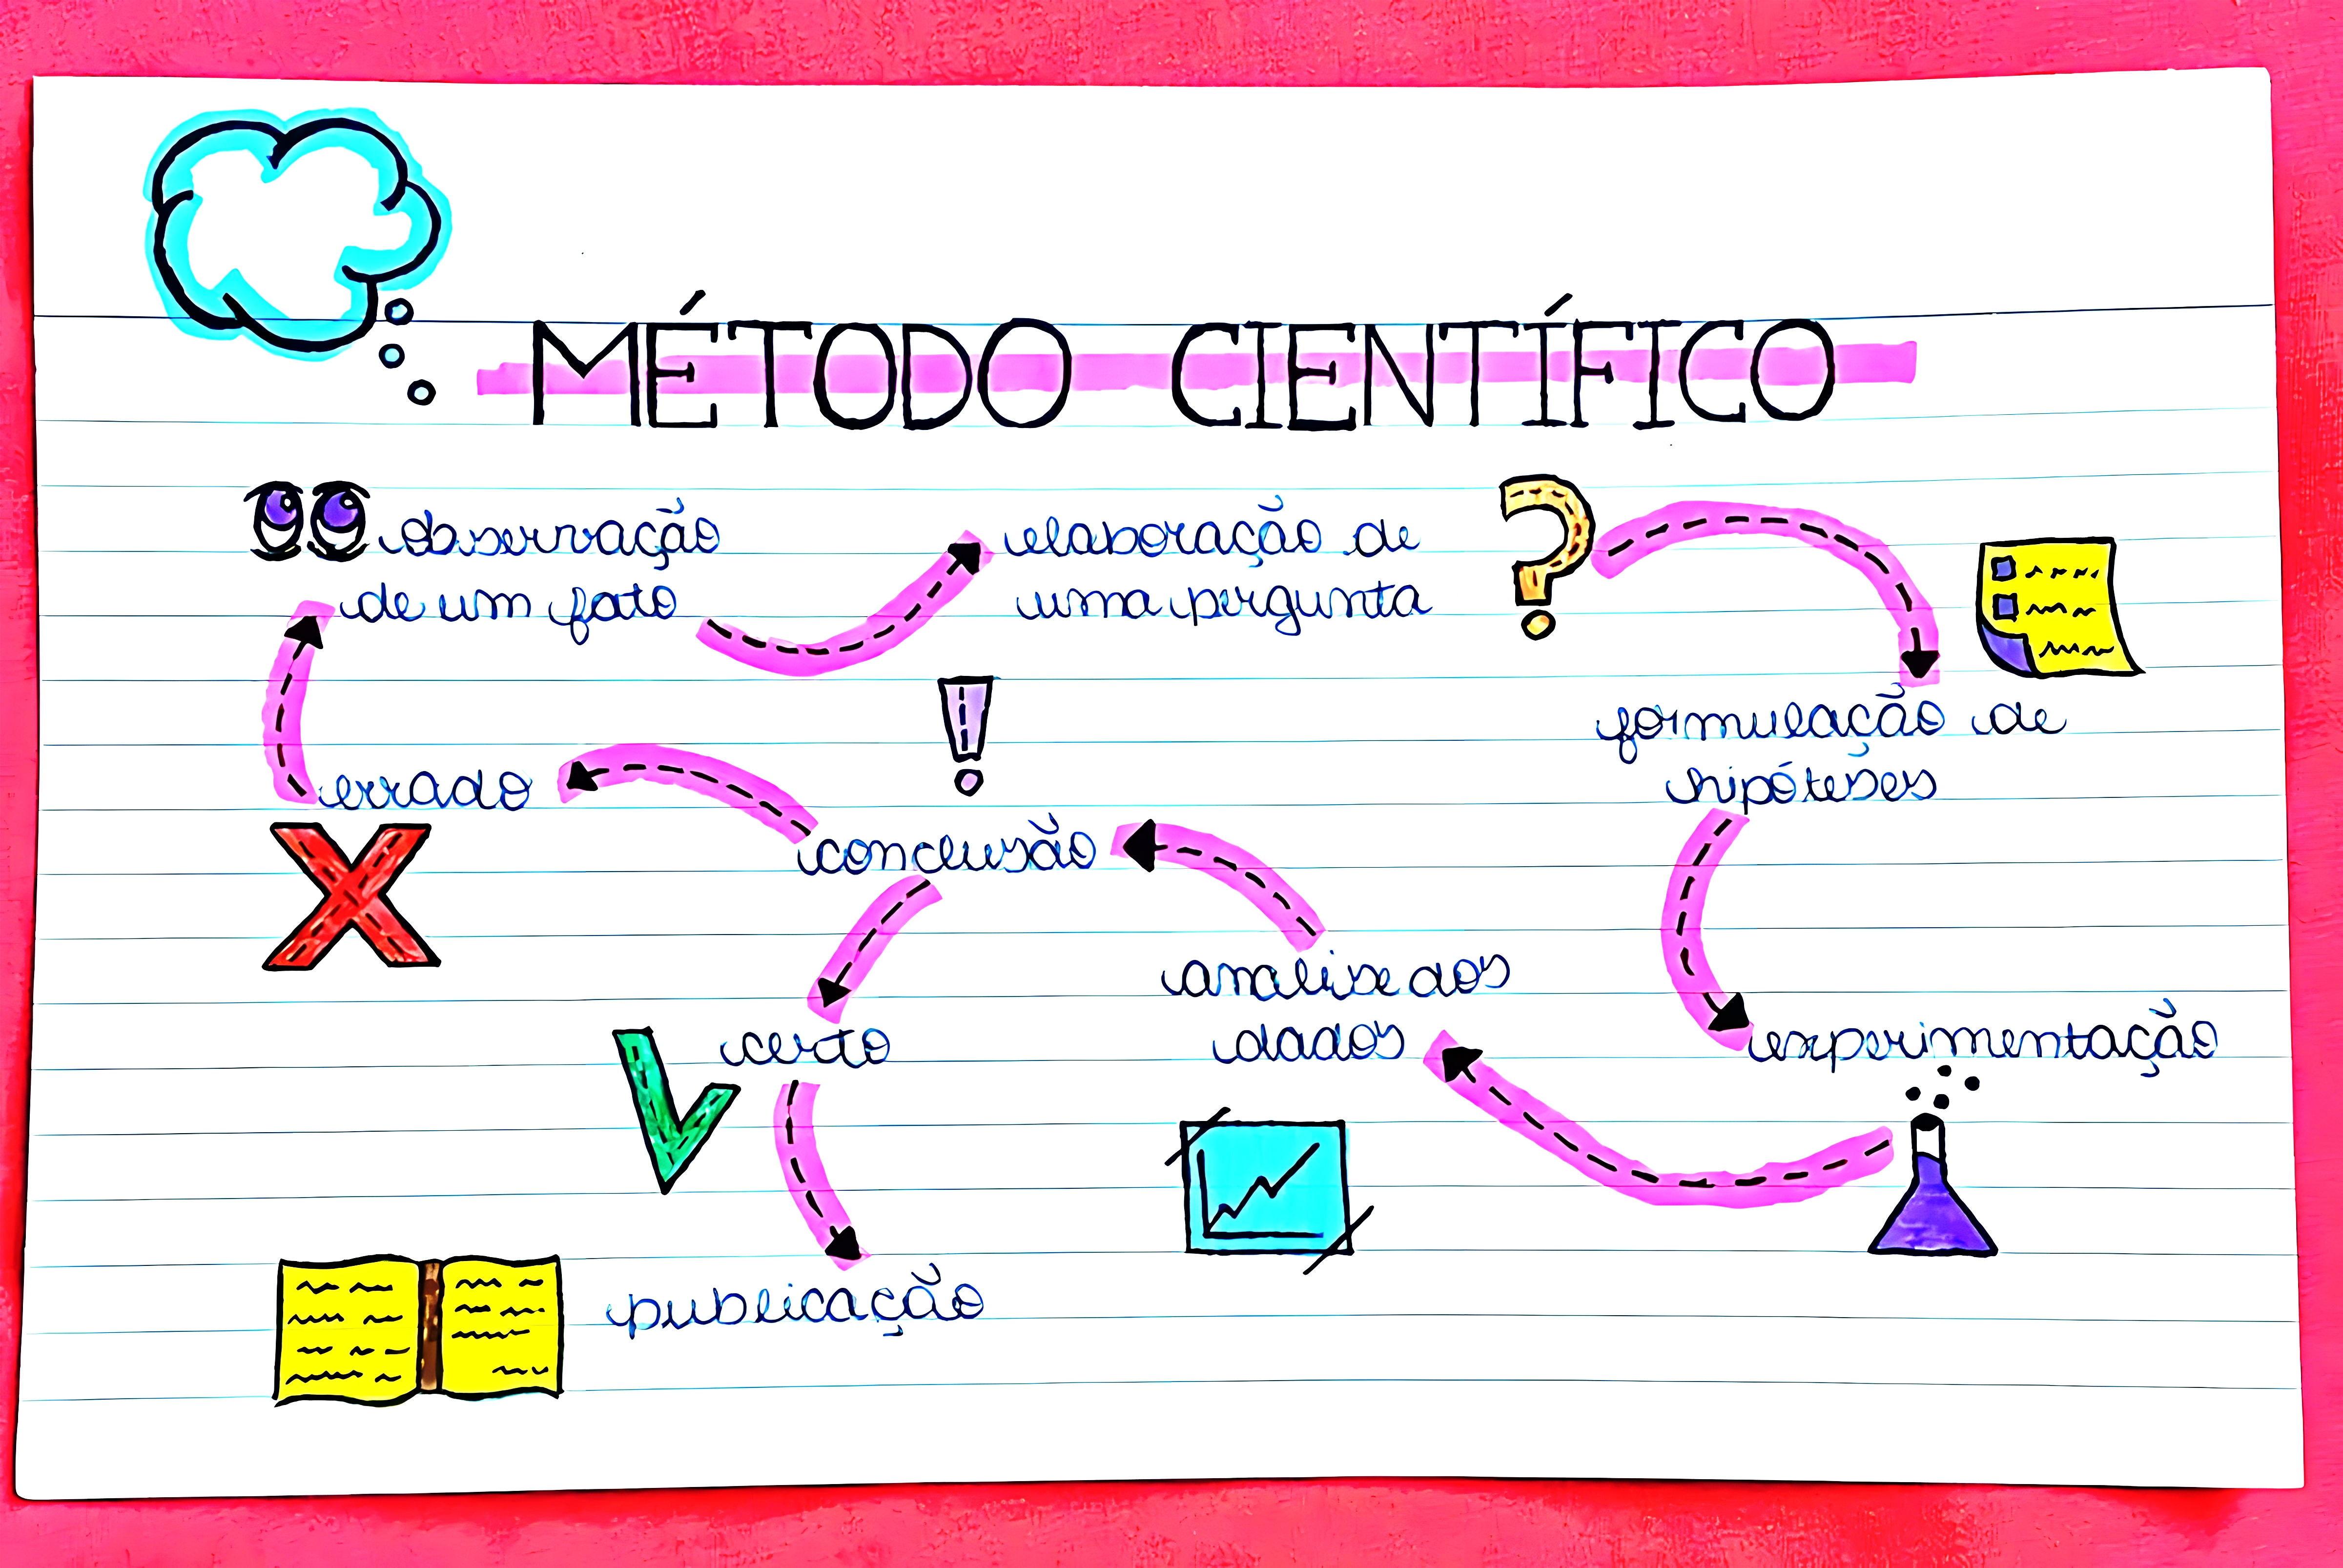 MÉTODO CIENTÍFICO
observação
de um fato
elaboração de
uma pergunta
?
formulação de
hipóteses
experimentação
analise dos
dados
!
conclusão
errado
certo
publicação